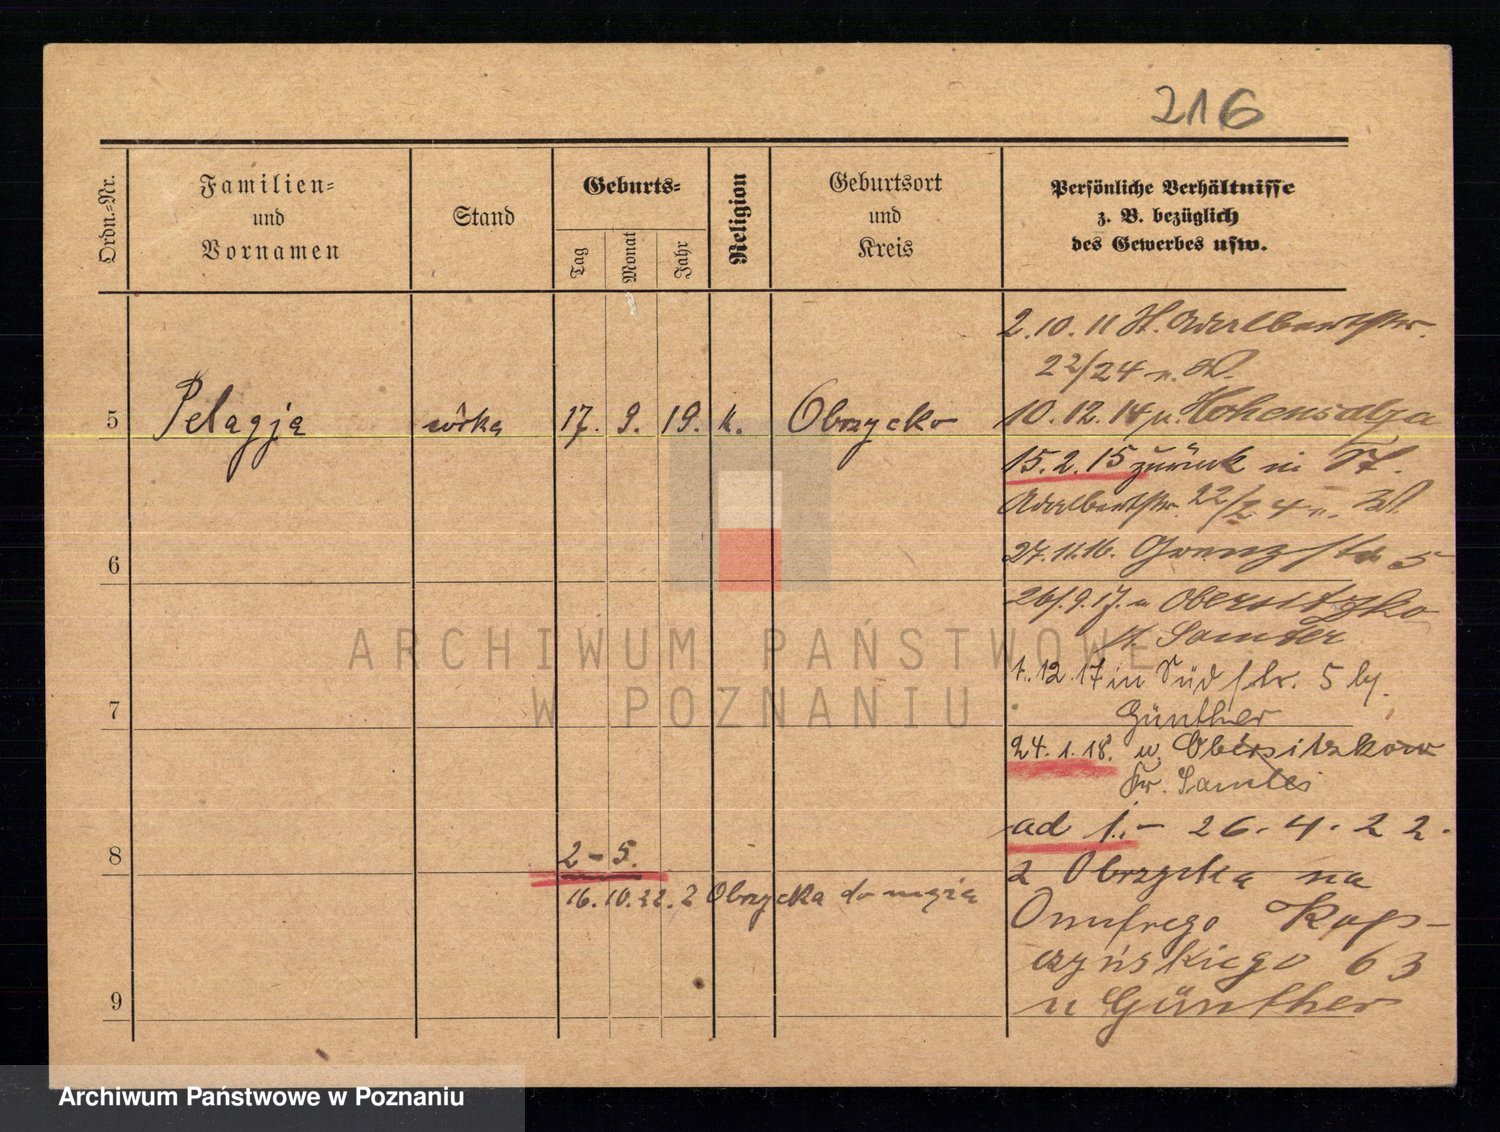 216
Ordn.-Nr.
Familien-
und
Vornamen
Stand
Geburts-
Tag
Monat
Jahr
Religion
Geburtsort
und
Kreis
Persönliche Verhältnisse
z. B. bezüglich
des Gewerbes usw.
2.10.11 St. Adalbertstr.
22/24 n. W.
5 Pelagja córka 17. 9. 19. k. Obrzycko
10.12.14 n. Hohensalza
15.2.15 zurück in St.
Adalbertstr. 22/24 n. W.
27.11.16. Grenzstr 5
6
26.9.17. n Obersitzko
Samter
1.12.17 in Südstr. 5 by.
Günther
7
24.1.18. n. Obersitzkow
Kr. Samter
ad 1.- 26.4.22.
8
2-5.
z Obrzycka na
16.10.22. z Obrzycka do męża
Onufrego Kop-
czyńskiego 63
u Günther
9
ARCHIWUM PAŃSTWOWE
W POZNANIU
Archiwum Państwowe w Poznaniu